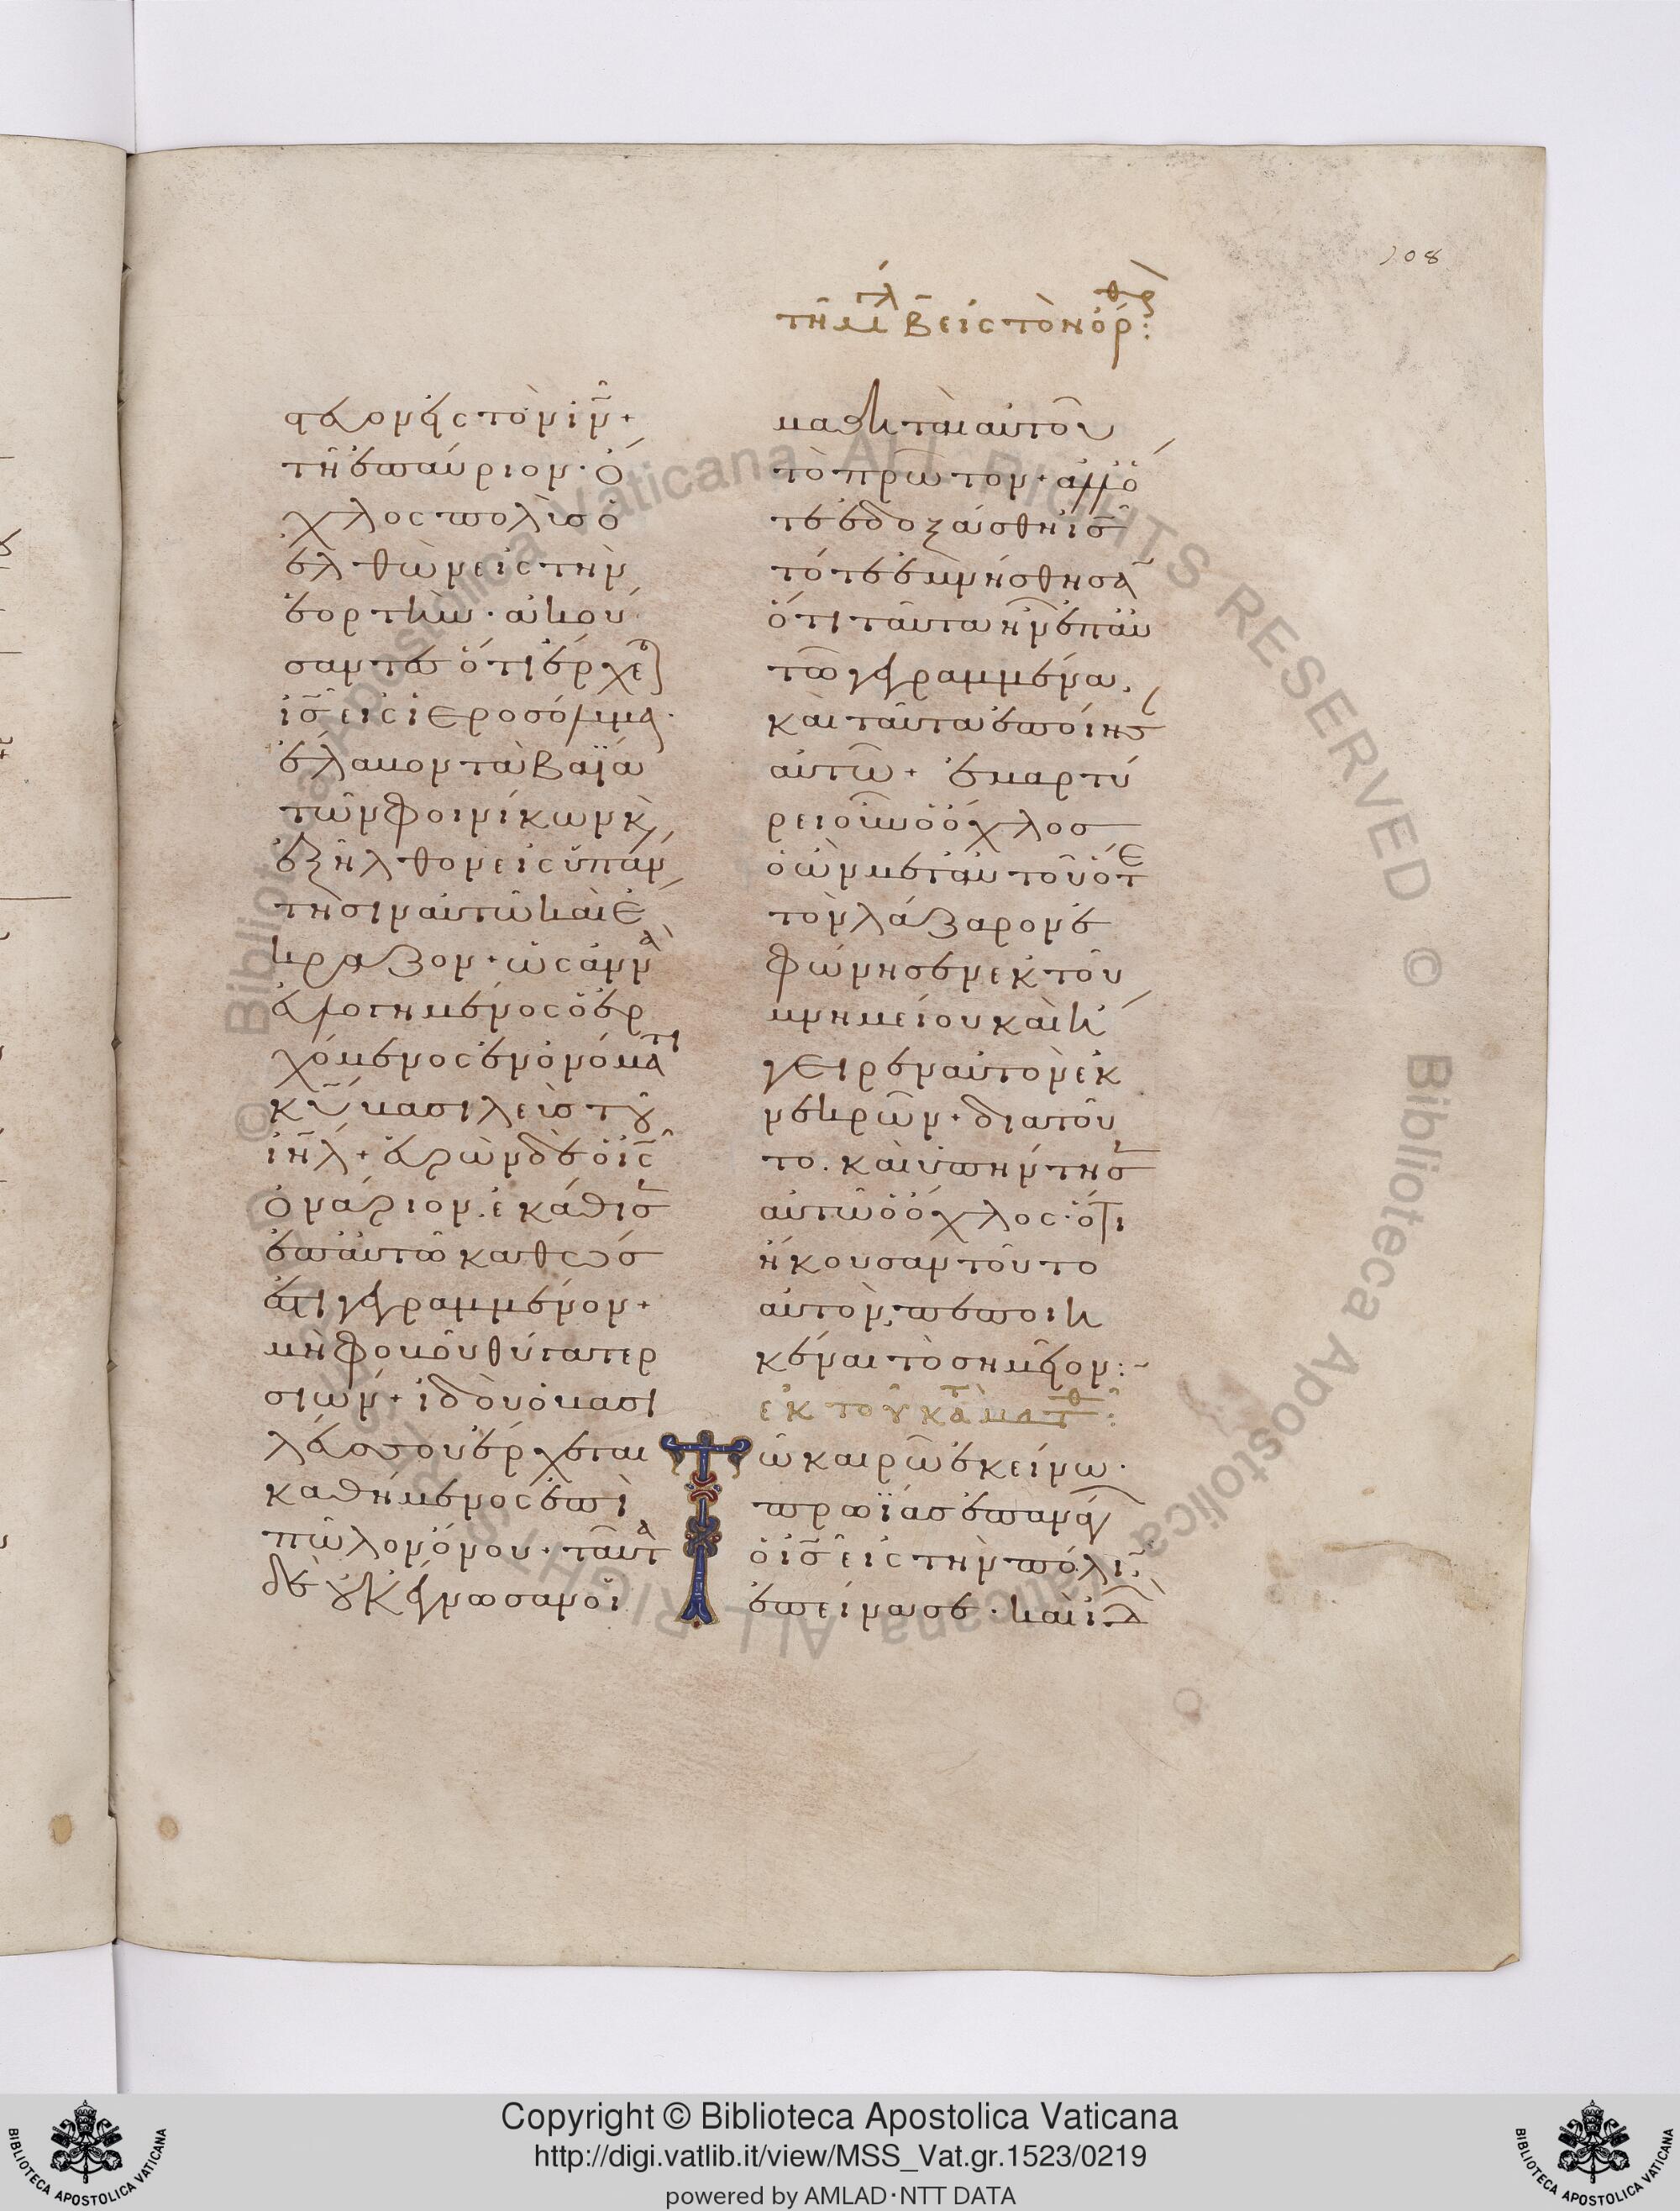 108
τῇ μ β εἰς τὸν ὄρθρ :
ρευον εἰς τὸν ιν +
τῆ ἐπαύριον · ὄ
χλος πολὺς ὁ
ἐλθὼν εἰς τὴν
ἑορτὴν · ἀκού
σαντες ὅτι ἔρχεται
ις εἰς ἱεροσόλυμα ·
ἔλαβον τὰ βαΐα
τῶν φοινίκων κ
ἐξῆλθον εἰς ὑπάν
τησιν αὐτῶ καὶ ἔ
κραζον · ὡσαννὰ
εὐλογημένος ὁ ἐρ
χόμενος ἐν ὀνόματι
κυ βασιλεὺς τοῦ
ιηλ + εὑρὼν δὲ ὁ ις
ὀνάριον · ἐκάθισεν
ἐπ αὐτῶ καθώς
ἐστι γεγραμμένον +
μὴ φοβοῦ θύγατερ
σιών + ἰδοὺ ὁ βασι
λεύς σου ἔρχεται
καθήμενος ἐπὶ
πῶλον ὄνου · ταῦτα
δὲ οὐκ ἔγνωσαν οἱ
μαθηταὶ αὐτοῦ
τὸ πρῶτον · ἀλλ ὅ
τε ἐδοξάσθη ις
τότε ἐμνήσθησαν
ὅτι ταῦτα ἦν ἐπ αὐ
τῶ γεγραμμένα ,
καὶ ταῦτα ἐποίησαν
αὐτῶ + ἐμαρτύ
ρει οὖν ὁ ὄχλος
ὁ ὢν μετ αὐτοῦ ὅτε
τὸν λάζαρον ἐ
φώνησεν ἐκ τοῦ
μνημείου καὶ ἤ
γειρεν αὐτὸν ἐκ
νεκρῶν · διὰ τοῦ
το · καὶ ὑπήντησεν
αὐτῶ ὁ ὄχλος · ὅτι
ἤκουσαν τοῦτο
αὐτὸν , πεποιη
κέναι τὸ σημεῖον : ~
ἐκ τοῦ κατὰ ματθ :
Τῶ καιρῶ ἐκείνω ·
πρωΐας ἐπανάγων
ὁ ις εἰς τὴν πόλιν ,
ἐπείνασε · καὶ ἰδὼν
Copyright © Biblioteca Apostolica Vaticana
http://digi.vatlib.it/view/MSS_Vat.gr.1523/0219
powered by AMLAD·NTT DATA
BIBLIOTECA APOSTOLICA VATICANA
BIBLIOTECA APOSTOLICA VATICANA